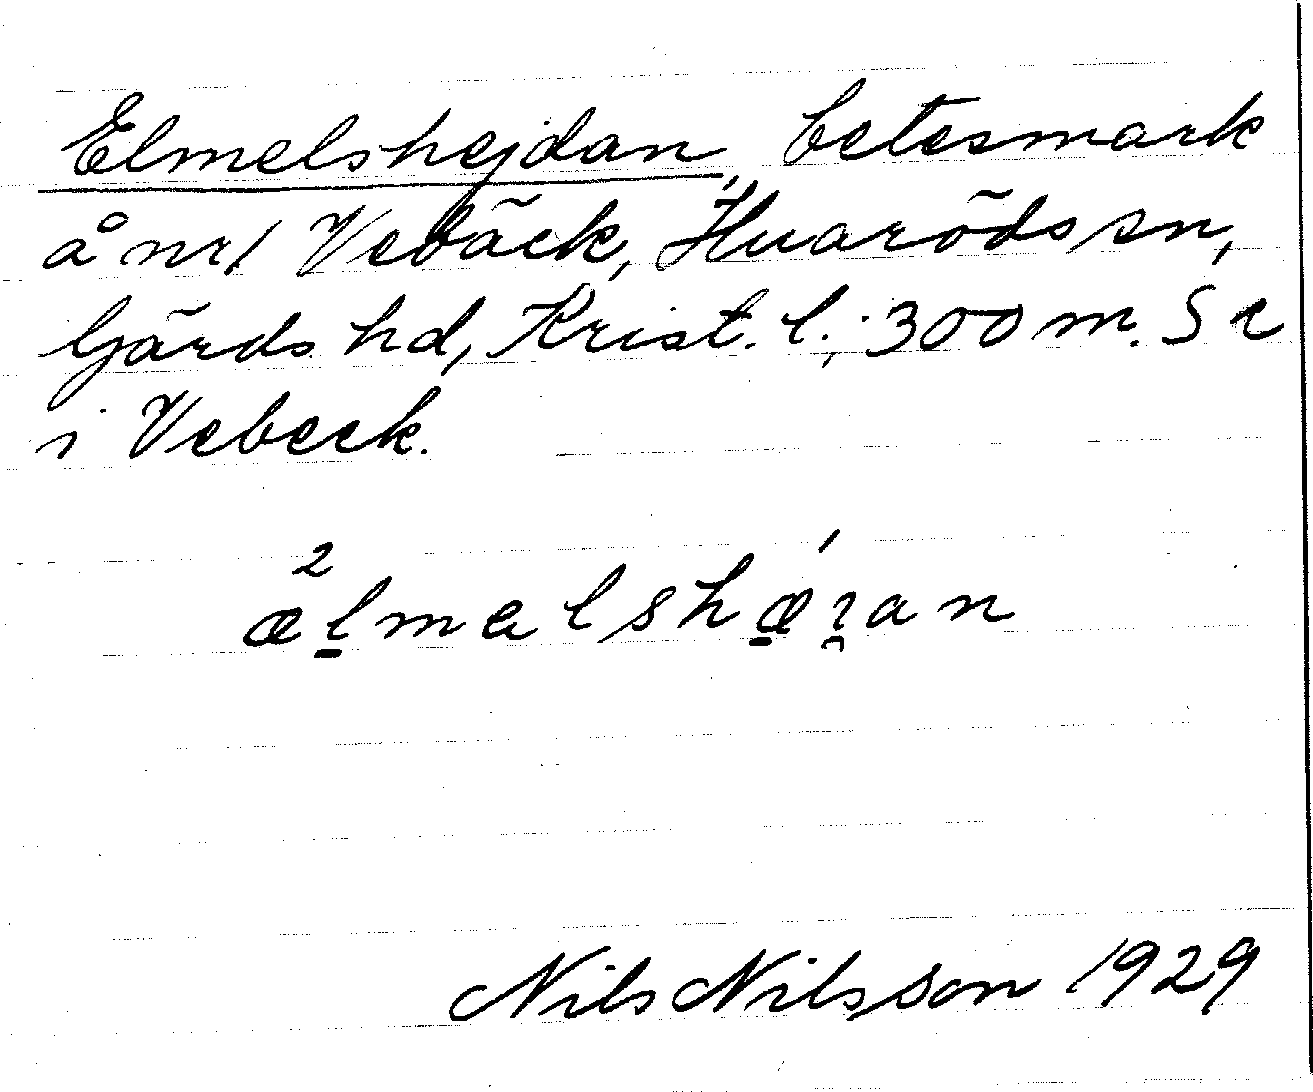 Elmelshejdan, betesmark
å nr 1 Vebäck, Huaröds sn,
Gärds hd, Krist. l.; 300 m. S e
i Vebeck.
²æl̠məlshǽ̠ɿ̯an
Nils Nilsson 1929